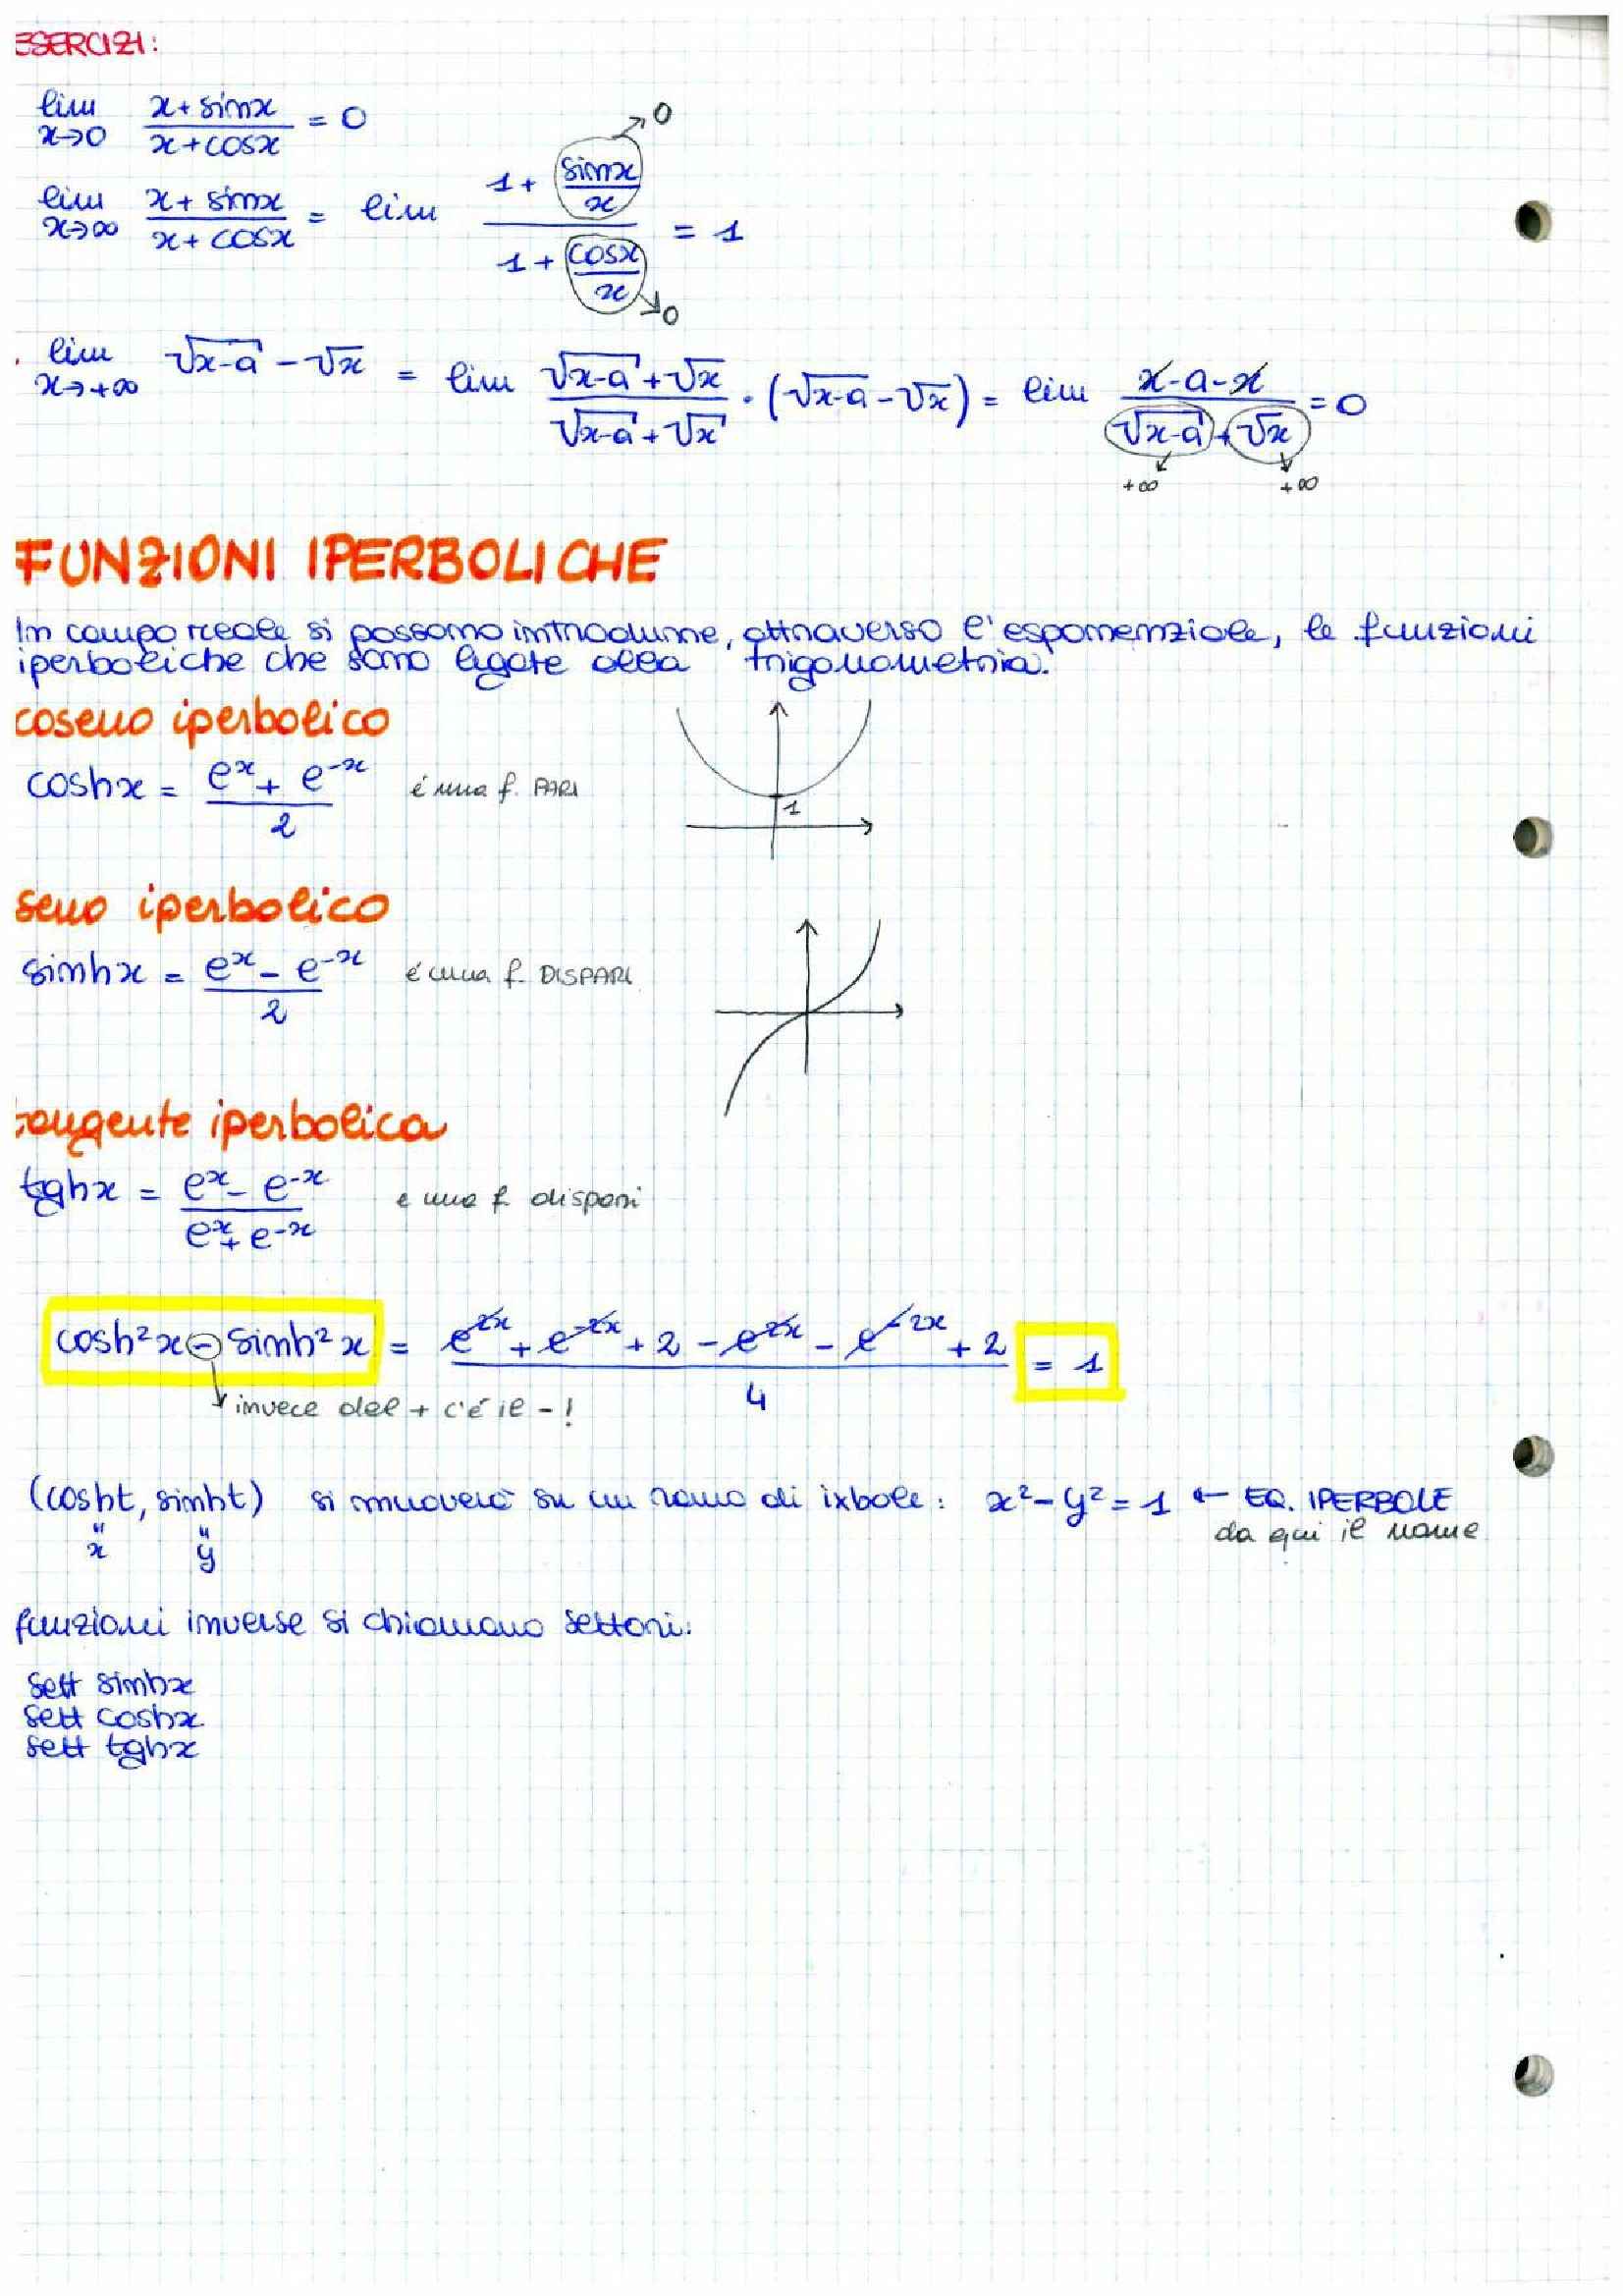 ESERCIZI:
lim x→0 (x + sinx)/(x + cosx) = 0
lim x→∞ (x + sinx)/(x + cosx) = lim (1 + sinx/x)/(1 + cosx/x) = 1
→0
→0
lim x→+∞ √(x-a) - √x = lim (√(x-a) + √x)/(√(x-a) + √x) · (√(x-a) - √x) = lim (x-a-x)/(√(x-a) + √x) = 0
+∞ +∞
FUNZIONI IPERBOLICHE
In campo reale si possono introdurre, attraverso l'esponenziale, le funzioni
iperboliche che sono legate alla trigonometria.
coseno iperbolico
coshx = (e^x + e^-x)/2 é una f. PARI
1
seno iperbolico
sinhx = (e^x - e^-x)/2 é una f. DISPARI
tangente iperbolica
tghx = (e^x - e^-x)/(e^x + e^-x) e una f. dispari
cosh²x - sinh²x = (e^2x + e^-2x + 2 - e^2x - e^-2x + 2)/4 = 1
invece del + c'é il - !
(cosht, sinht) si muoverà su un ramo di ixbole: x² - y² = 1 ← EQ. IPERBOLE
" "
x y
da qui il nome
funzioni inverse si chiamano settori:
sett sinhx
sett coshx
sett tghx